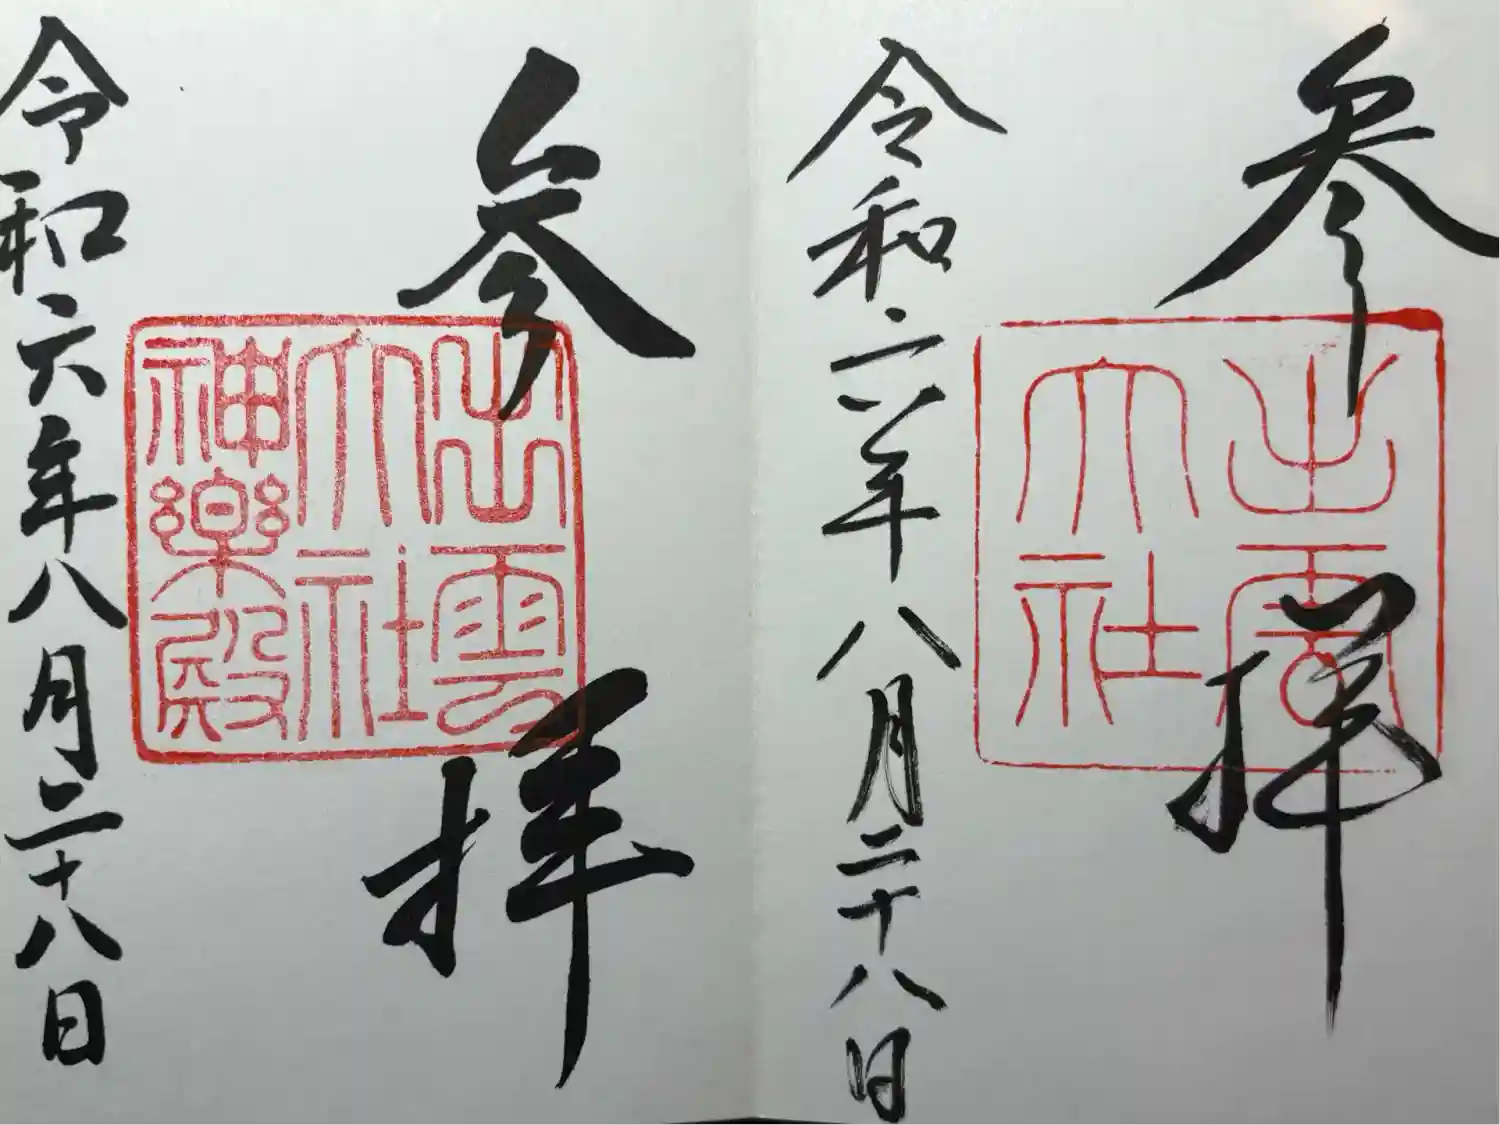 参拝
出雲
大社
令和六年八月二十八日
参拝
出雲
大社
神楽殿
令和六年八月二十八日